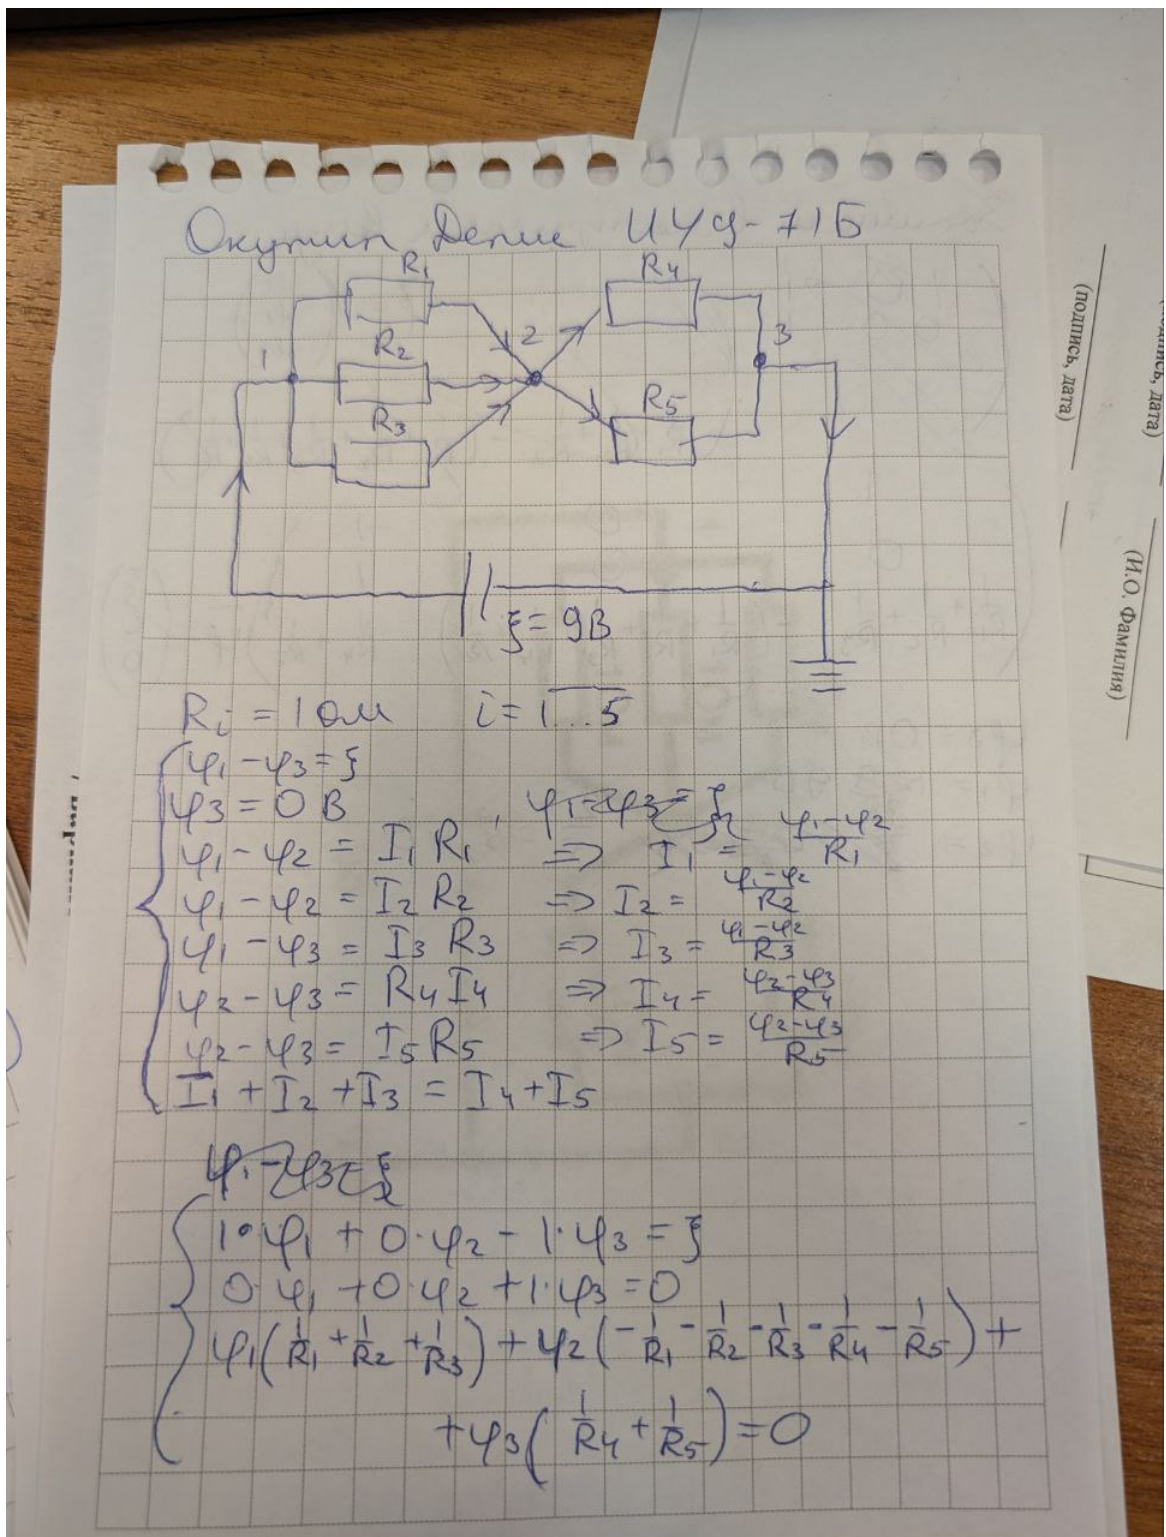 ИУ9-71Б
R₁
R₄
1
R₂
2
3
R₃
R₅
ξ = 9В
Rᵢ = 1 Ом i = 1...5
φ₁ - φ₃ = ξ
φ₃ = 0 В
φ₁ - φ₂ = I₁ R₁ => I₁ = (φ₁ - φ₂)/R₁
φ₁ - φ₂ = I₂ R₂ => I₂ = (φ₁ - φ₂)/R₂
φ₁ - φ₃ = I₃ R₃ => I₃ = (φ₁ - φ₂)/R₃
φ₂ - φ₃ = R₄ I₄ => I₄ = (φ₂ - φ₃)/R₄
φ₂ - φ₃ = I₅ R₅ => I₅ = (φ₂ - φ₃)/R₅
I₁ + I₂ + I₃ = I₄ + I₅
1·φ₁ + 0·φ₂ - 1·φ₃ = ξ
0·φ₁ + 0·φ₂ + 1·φ₃ = 0
φ₁(1/R₁ + 1/R₂ + 1/R₃) + φ₂(-1/R₁ - 1/R₂ - 1/R₃ - 1/R₄ - 1/R₅) +
+ φ₃(1/R₄ + 1/R₅) = 0
(подпись, дата)
(подпись, дата)
(И.О. Фамилия)